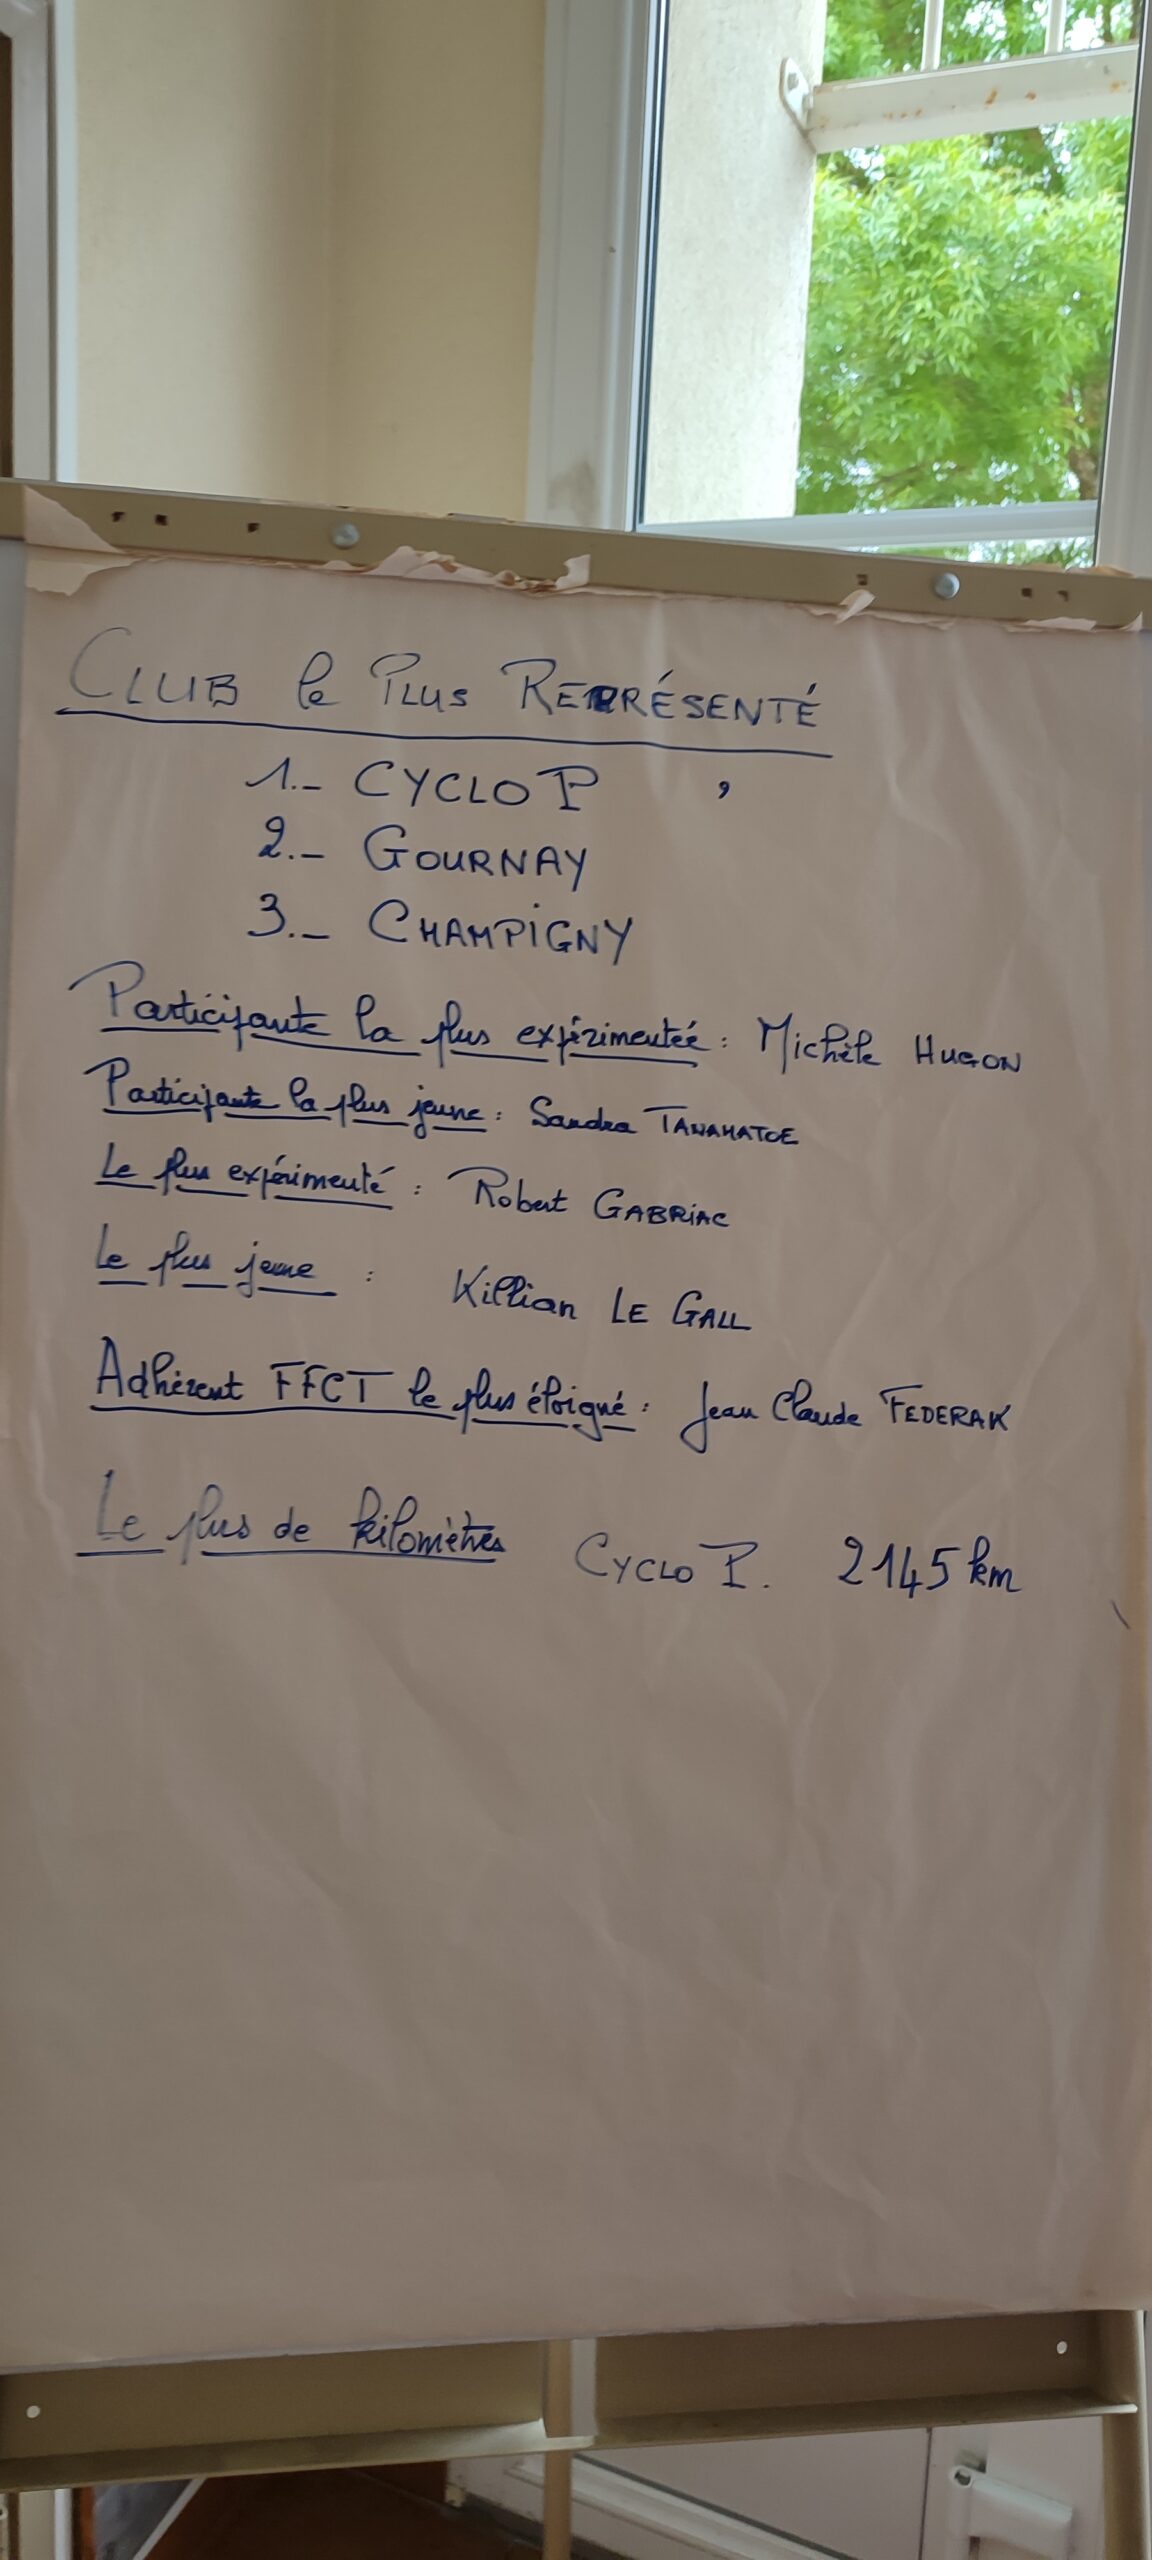 CLUB le PLUS REPRÉSENTÉ
1.- CYCLO P
2.- GOURNAY
3.- CHAMPIGNY
Participante la plus expérimentée : Michèle HUGON
Participante la plus jeune : Sandra TANAMATOE
Le plus expérimenté : Robert GABRIAC
Le plus jeune : Killian LE GALL
Adhérent FFCT le plus éloigné : Jean Claude FEDERAK
Le plus de kilomètres CYCLO P. 2145 km